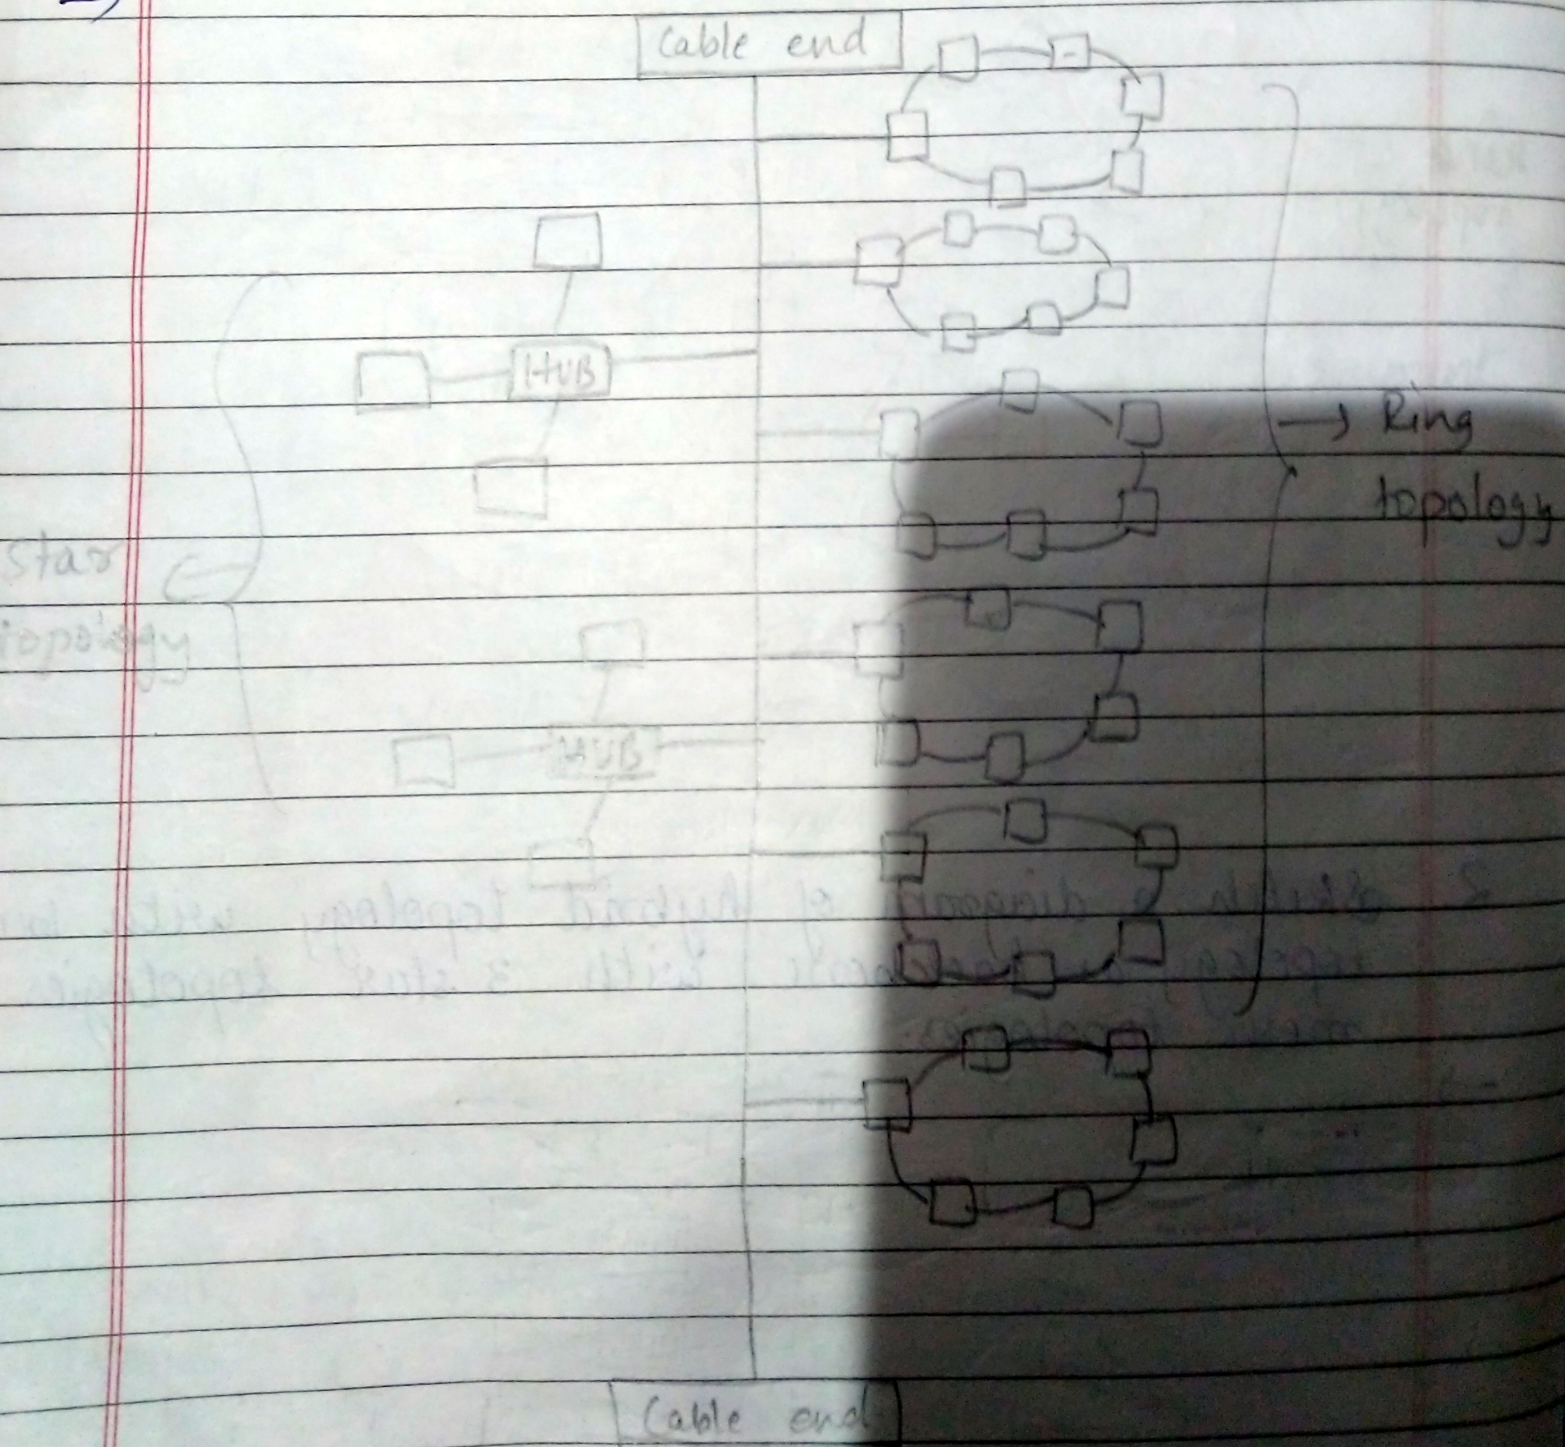 Cable end
HUB
→ Ring
topology
Star
topology
HUB
Cable end